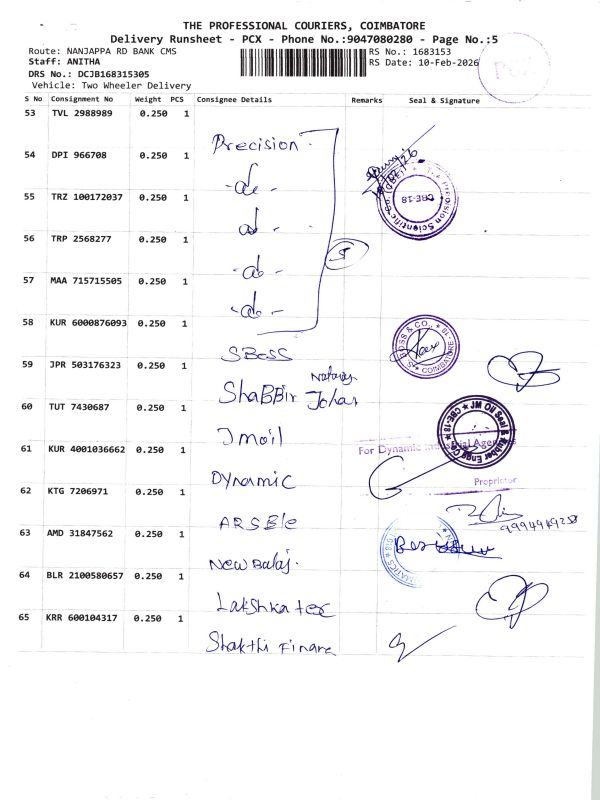 THE PROFESSIONAL COURIERS, COIMBATORE
Delivery Runsheet - PCX - Phone No.:9047080280 - Page No.:5
Route: NANJAPPA RD BANK CMS
RS No.: 1683153
Staff: ANITHA
RS Date: 10-Feb-2026
DRS No.: DCJB168315305
Vehicle: Two Wheeler Delivery
PCX
S No Consignment No Weight PCS Consignee Details Remarks Seal & Signature
53 TVL 2988989 0.250 1 Precision
54 DPI 966708 0.250 1 -do-
55 TRZ 100172037 0.250 1 do
56 TRP 2568277 0.250 1 -do-
5
57 MAA 715715505 0.250 1 -do-
58 KUR 6000876093 0.250 1 SBoss
S. BOSS & CO., COIMBATORE-18
59 JPR 503176323 0.250 1 ShaBBir Johar
60 TUT 7430687 0.250 1 Jmoil
JM Oil Seal & Rubber Engg Co CBE-18
61 KUR 4001036662 0.250 1 Dynamic
For Dynamic Industrial Agencies
Proprietor
62 KTG 7206971 0.250 1 ARSBle
63 AMD 31847562 0.250 1 New Balaj.
64 BLR 2100580657 0.250 1 Lakshka tex
65 KRR 600104317 0.250 1 Shakthi Finane